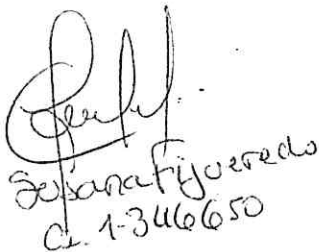 Susana Figueredo
CI. 1-346650